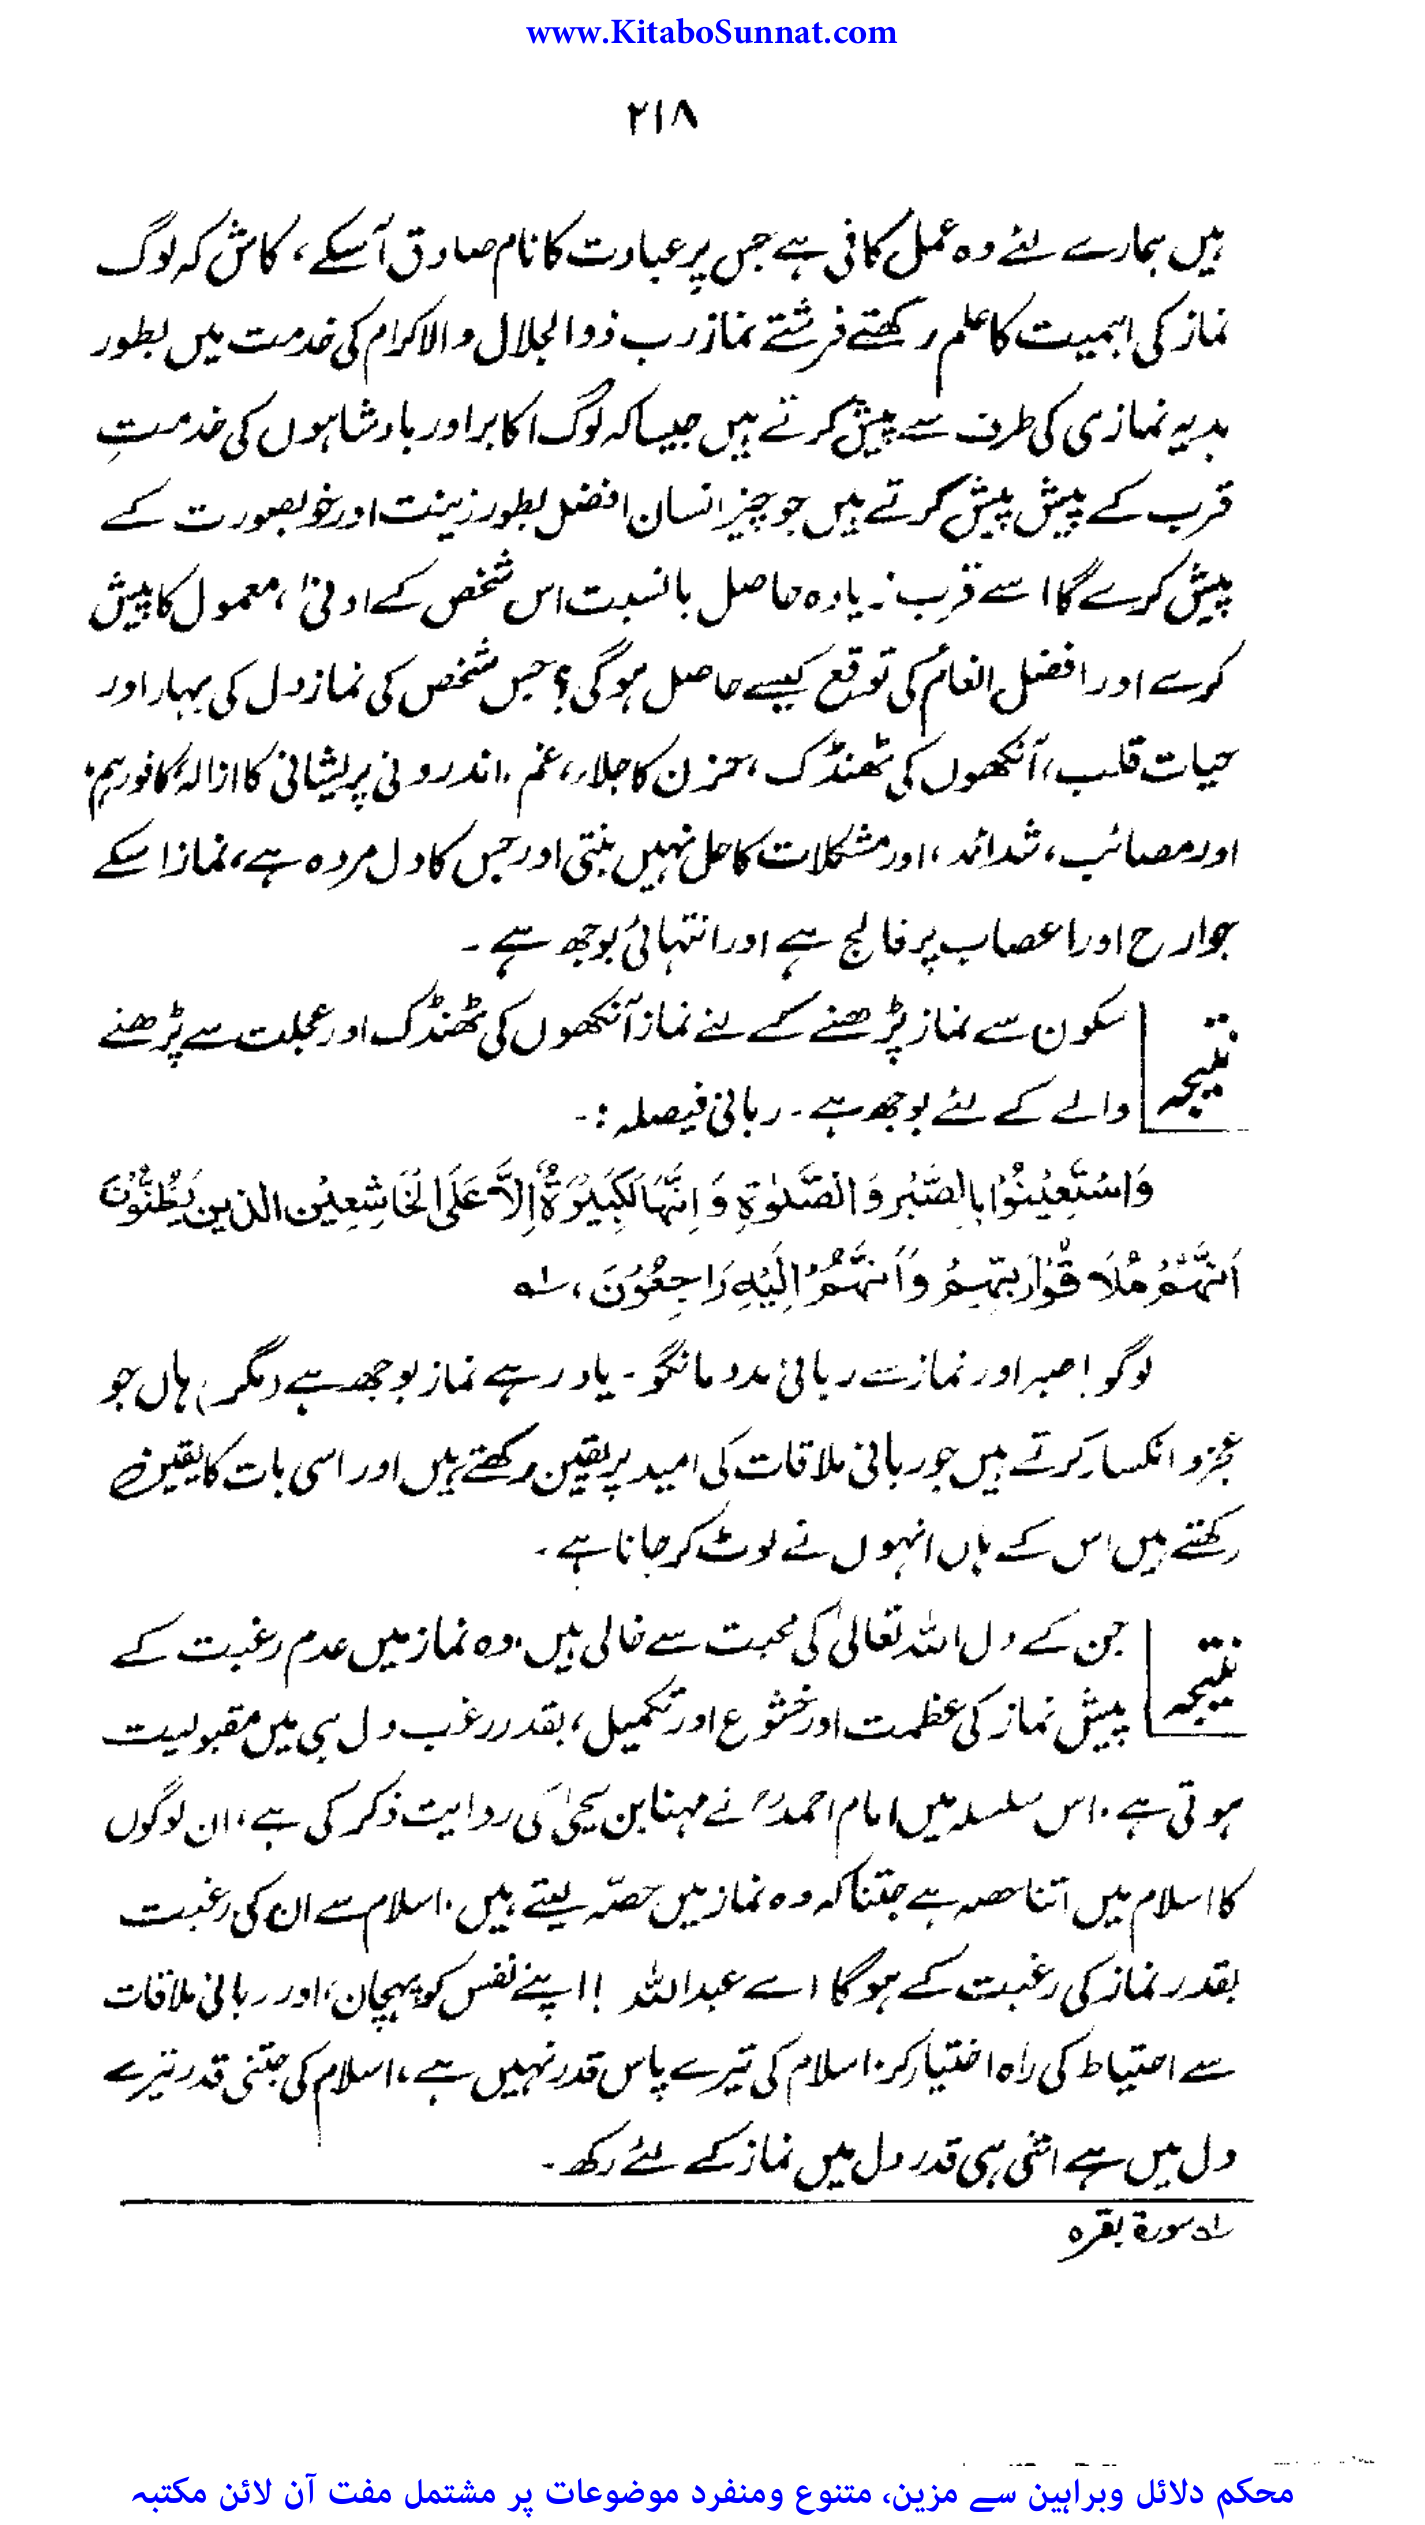 www.KitaboSunnat.com
۲۱۸
ہیں ہمارے لئے وہ عمل کافی ہے جس پر عبادت کا نام صادق آسکے، کاش کہ لوگ
نماز کی اہمیت کا علم رکھتے فرشتے نماز رب ذوالجلال والاکرام کی خدمت میں بطور
ہدیہ نمازی کی طرف سے پیش کرتے ہیں جیسا کہ لوگ اکابر اور بادشاہوں کی خدمتِ
قرب کے پیش پیش کرتے ہیں جو چیز انسان افضل بطور زینت اور خوبصورت کے
پیش کرے گا اسے قرب زیادہ حاصل بالنسبت اس شخص کے ادنیٰ، معمول کا پیش
کرے اور افضل انعام کی توقع کیسے حاصل ہوگی؟ جس شخص کی نماز دل کی بہار اور
حیات قلب، آنکھوں کی ٹھنڈک، حزن کا جلاء، غم، اندرونی پریشانی کا ازالہ، کافورہم،
اور مصائب، شدائد، اور مشکلات کا حل نہیں بنتی اور جس کا دل مردہ ہے، نماز اسکے
جوارح اور اعصاب پر فالج ہے اور انتہائی بوجھ ہے ۔
نتیجہ سکون سے نماز پڑھنے کے لئے نماز آنکھوں کی ٹھنڈک اور عجلت سے پڑھنے
والے کے لئے بوجھ ہے ۔ ربانی فیصلہ :۔
وَاسْتَعِيْنُوْا بِالصَّبْرِ وَالصَّلٰوةِ وَاِنَّهَا لَكَبِيْرَةٌ اِلَّا عَلَى الْخَاشِعِيْنَ الَّذِيْنَ يَظُنُّوْنَ
اَنَّهُمْ مُلَاقُوْا رَبِّهِمْ وَاَنَّهُمْ اِلَيْهِ رَاجِعُوْنَ، ؎۱
لوگو! صبر اور نماز سے ربانی مدد مانگو ۔ یاد رہے نماز بوجھ ہے (مگر) ہاں جو
عجز و انکسار کرتے ہیں جو ربانی ملاقات کی امید پر یقین رکھتے ہیں اور اسی بات کا یقین
رکھتے ہیں اس کے ہاں انہوں نے لوٹ کر جانا ہے ۔
نتیجہ جن کے دل اللہ تعالیٰ کی محبت سے خالی ہیں، وہ نماز میں عدم رغبت کے
پیش نماز کی عظمت اور خشوع اور تکمیل، بقدر رغب دل ہی میں مقبولیت
ہوتی ہے۔ اس سلسلہ میں امام احمدؒ نے مہنا بن یحییٰ کی روایت ذکر کی ہے، ان لوگوں
کا اسلام میں اتنا حصہ ہے جتنا کہ وہ نماز میں حصّہ لیتے ہیں۔ اسلام سے ان کی رغبت
بقدر نماز کی رغبت کے ہوگا اے عبداللہ ! اپنے نفس کو پہچان، اور ربانی ملاقات
سے احتیاط کی راہ اختیار کر۔ اسلام کی تیرے پاس قدر نہیں ہے، اسلام کی جتنی قدر تیرے
دل میں ہے اتنی ہی قدر دل میں نماز کے لئے رکھ ۔
؎۱ سورۃ بقرہ
محکم دلائل وبراہین سے مزین، متنوع ومنفرد موضوعات پر مشتمل مفت آن لائن مکتبہ